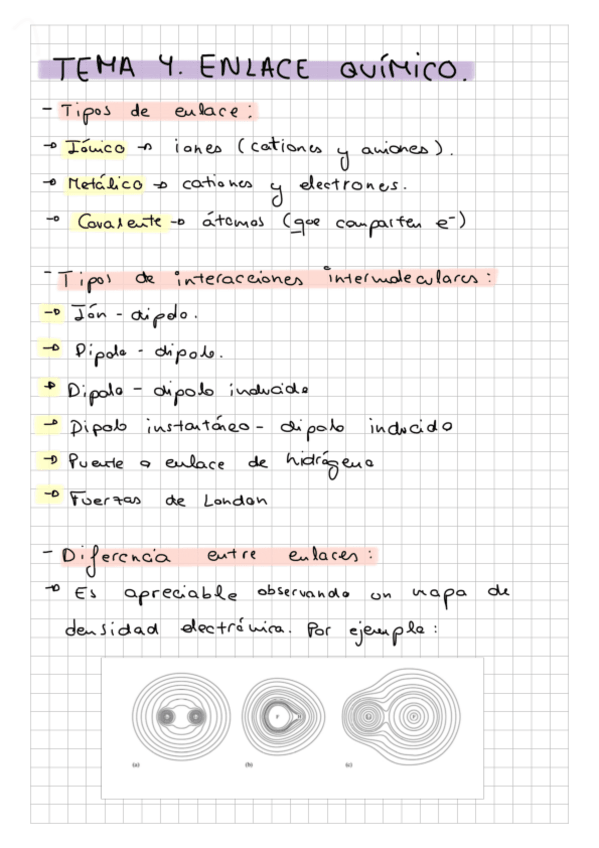 TEMA 4. ENLACE QUÍMICO.
- Tipos de enlace:
→ Iónico → iones (cationes y aniones).
→ Metálico → cationes y electrones.
→ Covalente → átomos (que comparten e⁻)
- Tipos de interacciones intermoleculares:
→ Ión - dipolo.
→ Dipolo - dipolo.
→ Dipolo - dipolo inducido
→ Dipolo instantáneo - dipolo inducido
→ Puente o enlace de hidrógeno
→ Fuerzas de London
- Diferencia entre enlaces:
→ Es apreciable observando un mapa de
densidad electrónica. Por ejemplo:
(a) (b) (c)